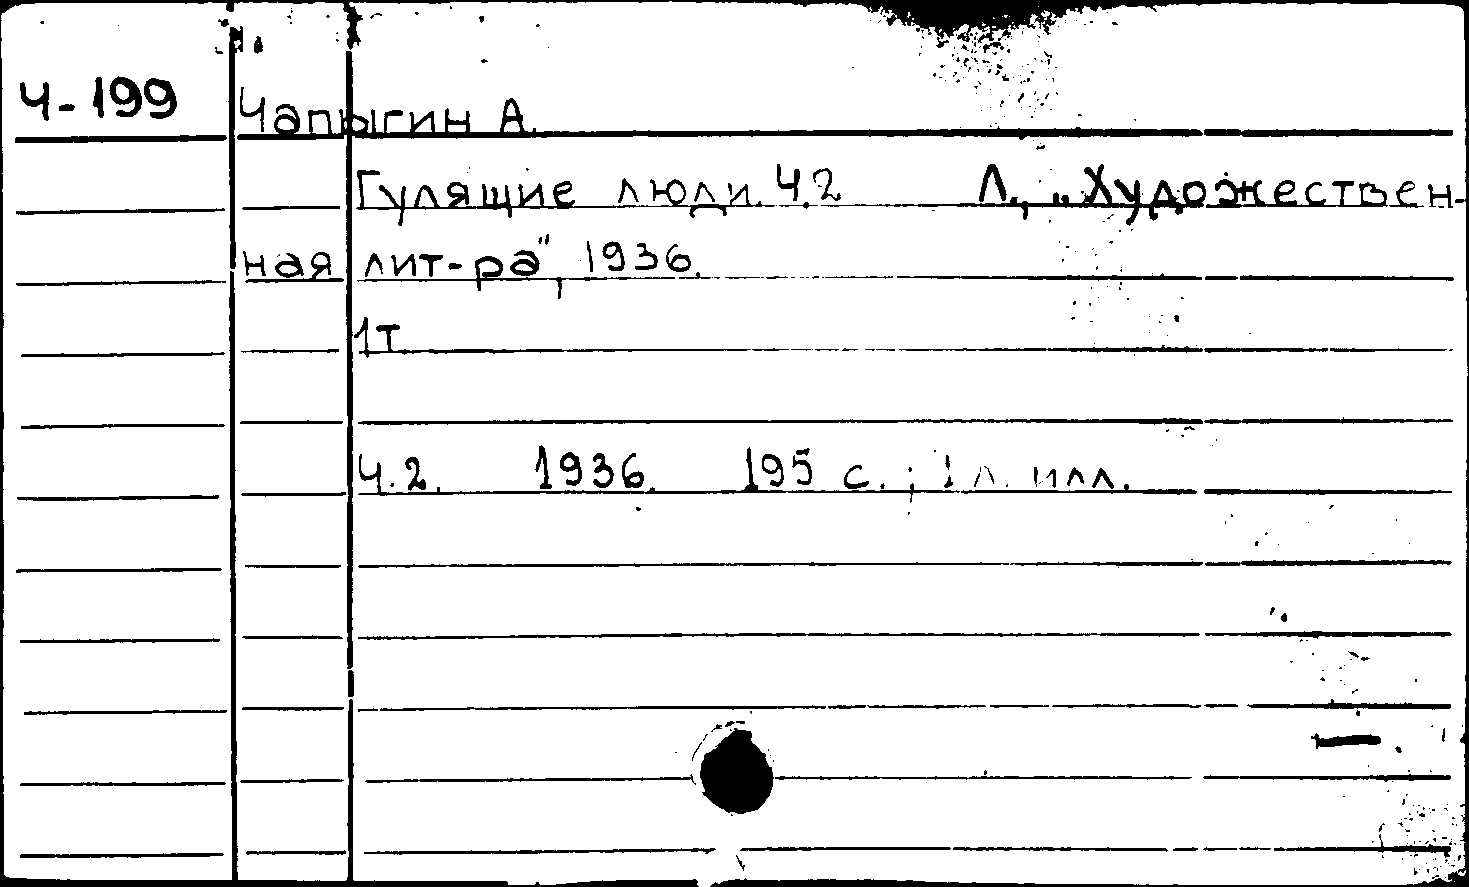 Ч-199 Чапыгин А.
Гулящие люди. Ч.2 Л., „Художествен-
ная лит-ра", 1936.
1т
Ч.2. 1936. 195 с. ; 1 л. илл.